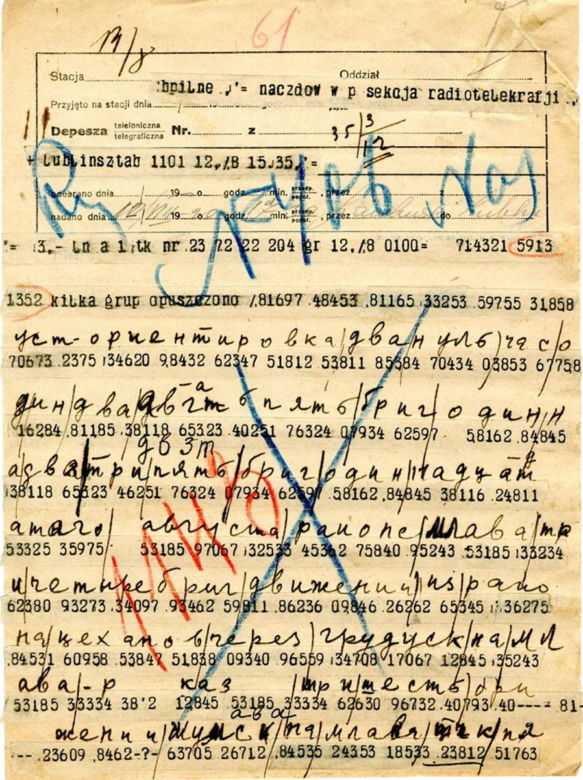 13/8
61
Stacja Oddział
bpilne = naczdow w p sekcja radiotelekrafji
Przyjęto na stacji dnia
Depesza telefoniczna telegraficzna Nr. z 35 3/12
+ Lublinsztab 1101 12./8 15.35. =
odebrano dnia 19 o godz. min. przez
nadano dnia 12/VIII 19 o godz. min. przez do
= 3.- tn a 1 tk nr 23 72 22 204 gr 12./8 0100= 714321 5913
1352 kilka grup opuszczono .81697 .48453 .81165 .33253 .59755 .31858
уст-ориентировка/двануль/часо
70673 .2375 .34620 9.8432 62347 51812 53811 85584 70434 03853 67758
дин/два/двгат б пять/бриг о дин н
16284 .81185 .38118 65323 .40251 76324 07934 62597 58162 .84845
двзт
адва/три/пять/бриг/один/надцат
38118 65323 46251 76324 07934 62597 .58162 .84845 38116 .24811
атаго августа/раионе/млава/тр
53325 35975 53185 .97067 .32533 45362 75840 .95243 .53185 .33234
МИЗ
и четыре бриг/движении/из/раио
62380 93273 .34097 .93462 59811 .86236 09846 .26262 65345 .36275
на/цеханов/через/грудуск/на/мл
.84531 60958 .53847 51838 09340 .96559 .34708 .17067 12845 .35243
ава-р каз три/шесть/бри
53185 33334 38'2 12845 .53185 .33334 62630 96732 .40793 .40---- 81-
ава
жени на млава тчк пя
--- .23609 .8462-?- 63705 26712 .84535 24353 18533 .23812 .51763